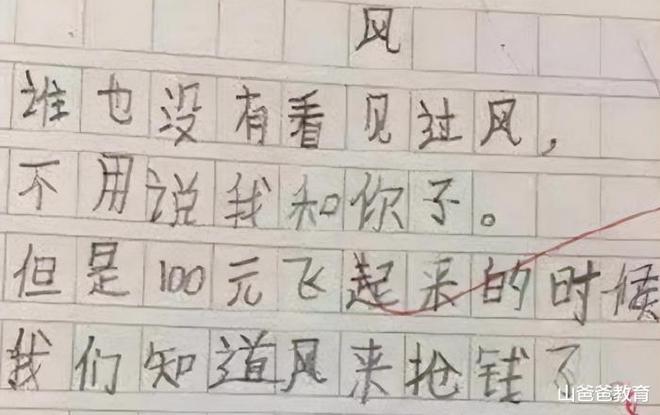 风
谁也没有看见过风，
不用说我和你了。
但是100元飞起来的时候
我们知道风来抢钱了
山爸爸教育